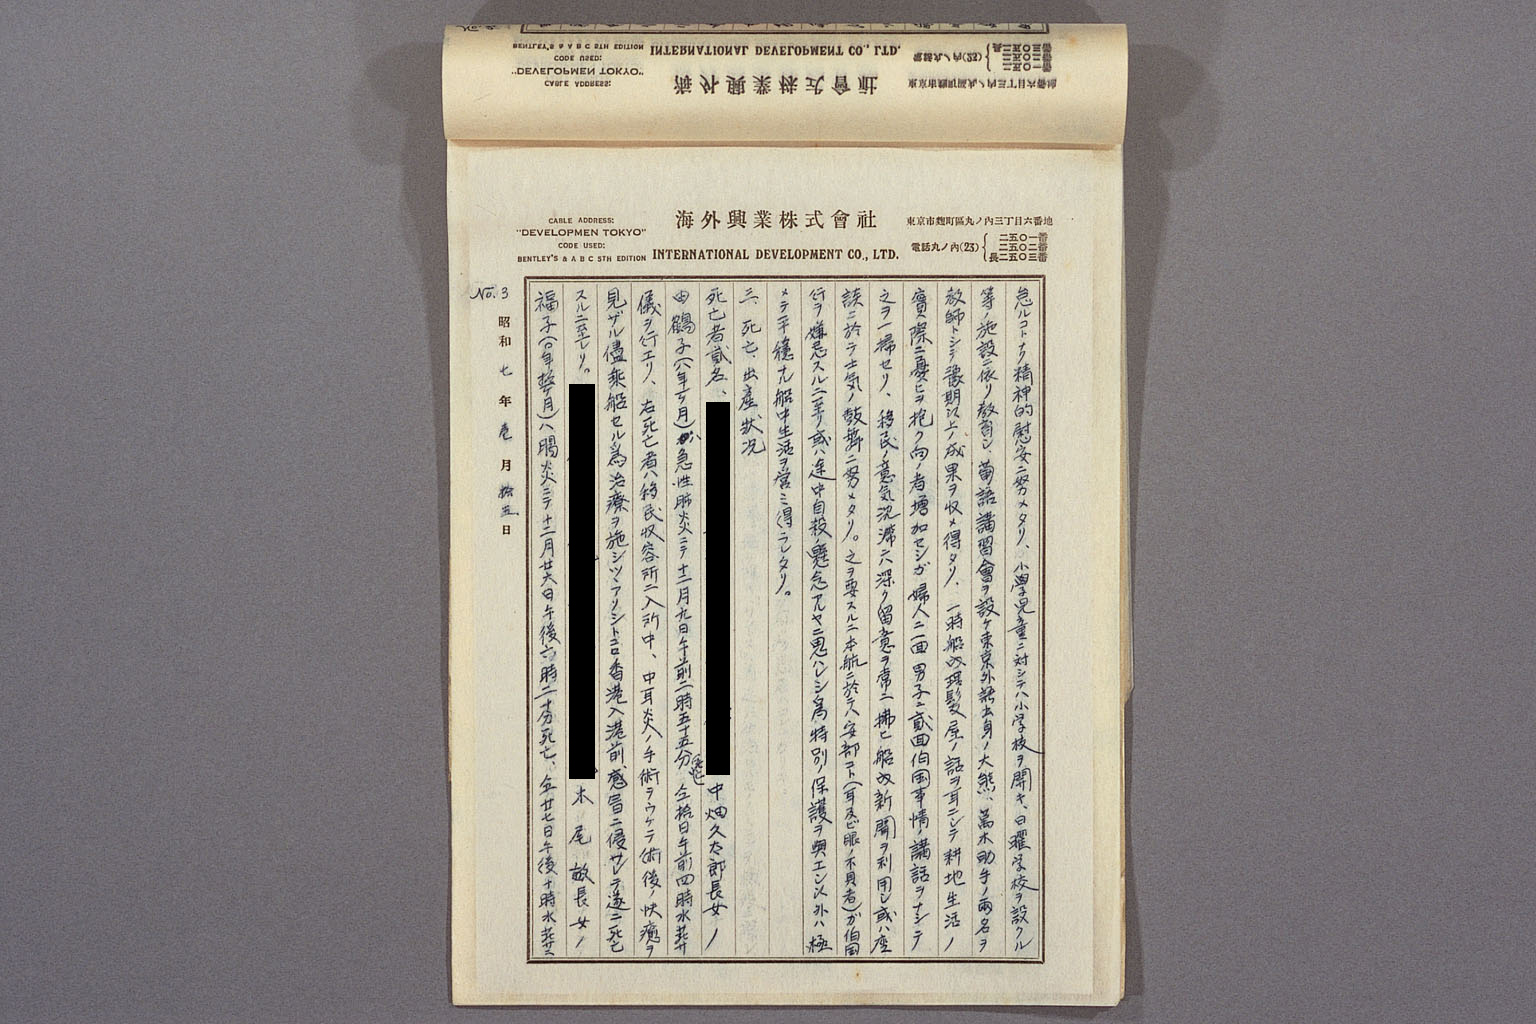 海外興業株式會社
INTERNATIONAL DEVELOPMENT CO., LTD.
CABLE ADDRESS:
"DEVELOPMEN TOKYO"
CODE USED:
BENTLEY'S & A B C 5TH EDITION
東京市麴町區丸ノ內三丁目六番地
電話丸ノ內(23)
二五〇一番
二五〇二番
長二五〇三番
急ルコトナク精神的慰安ニ努メタリ、小學児童ニ対シテハ小学校ヲ開キ、日曜学校ヲ設クル
等ノ施設ニ依リ教育シ、葡語講習會ヲ設ケ東京外語出身ノ大熊、萬木助手ノ兩名ヲ
教師トシテ豫期以上ノ成果ヲ収メ得タリ、一時船内理髪屋ノ話ヲ耳ニシテ耕地生活ノ
實際ニ憂ヒヲ抱ク向ノ者増加セシガ婦人ニ一回男子ニ貳回伯国事情ノ講話ヲナシテ
之ヲ一掃セリ、移民ノ意気沈滞ニハ深ク留意ヲ常ニ拂ヒ船内新聞ヲ利用シ或ハ座
談ニ於テ士気ノ鼓舞ニ努メタリ。之ヲ要スルニ本航ニ於テハ安部コト(耳及ビ眼ノ不具者)ガ伯国
行ヲ嫌忌スルニ至リ或ハ途中自殺ノ懸念アルヤニ思ハレシ為特別ノ保護ヲ與エシ以外ハ極
メテ平穏ナル船中生活ヲ営ミ得ラレタリ。
三、死亡、出産状況
死亡者貳名、中畑久太郎長女ノ
由鶴子(八年一ヶ月)ガ急性肺炎ニテ十二月九日午前二時五十五分死亡仝拾日午前四時水葬
儀ヲ行エリ、右死亡者ハ移民収容所ニ入所中、中耳炎ノ手術ヲウケテ術後ノ快癒ヲ
見ザル儘乗船セル為治療ヲ施シツヽアリシトコロ香港入港前感冒ニ侵サレテ遂ニ死亡
スルニ至レリ。木尾敏長女ノ
福子(〇年拾ヶ月)ハ腸炎ニテ十二月廿六日午後六時二十分死亡、仝廿七日午後十時水葬ニ
No. 3
昭和七年壱月拾五日
INTERNATIONAL DEVELOPMENT CO., LTD.
CABLE ADDRESS:
"DEVELOPMEN TOKYO"
CODE USED:
BENTLEY'S & A B C 5TH EDITION